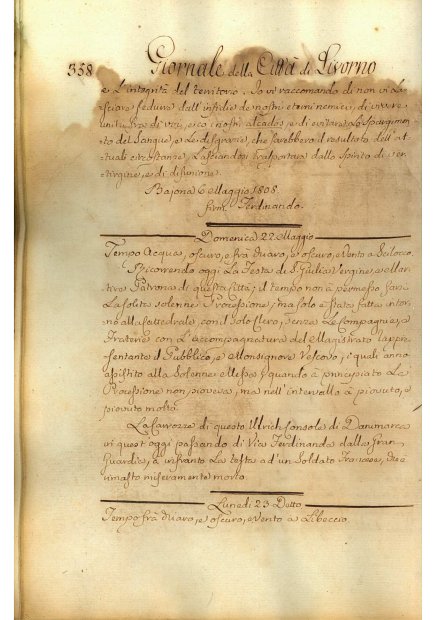 358
Giornale della Città di Livorno
e L'integrità del territorio. Io vi raccomando di non vi La-
sciare sedurre dall'insidie de nostri eterni nemici, di vivere
uniti frà di voi, e co i nostri alleati, e di evitare Lo Spargimen-
to del Sangue, e Le disgrazie, che sarebbero il resultato dell'at-
tuali circostanze, Lasciandosi trasportare dallo Spirito di ver-
tigine, e di disunione.
Bajona 6 Maggio 1808
firm. Ferdinando.
Domenica 22 Maggio
Tempo Acqua, oscuro, e frà Chiaro, e oscuro, e Vento a Scilocco.
Ricorrendo oggi La Festa di S. Giulia Vergine, e Mar-
tire Patrona di questa Città; il tempo non à permesso farsi
La Solita solenne Processione; ma solo è Stata fatta intor-
no alla Cattedrale, con il Solo Clero, Senza Le Compagnie, e
Fraterie con L'accompagnatura del Magistrato rappre-
sentante il Pubblico, e Monsignore Vescovo; i quali anno
assistito alla Solenne Messa; quando à principiato La
Processione non pioveva, ma nell'intervallo à piovuto, e
piovuto molto.
La Carrozza di questo Ulrich Console di Danimarca
ier quest'oggi passando di Via Ferdinanda dalla Gran
Guardia, à infranto La testa ad'un Soldato Francese, che è
rimasto miseramente morto.
Lunedì 23 Detto
Tempo frà Chiaro, e oscuro, e Vento a Libeccio.